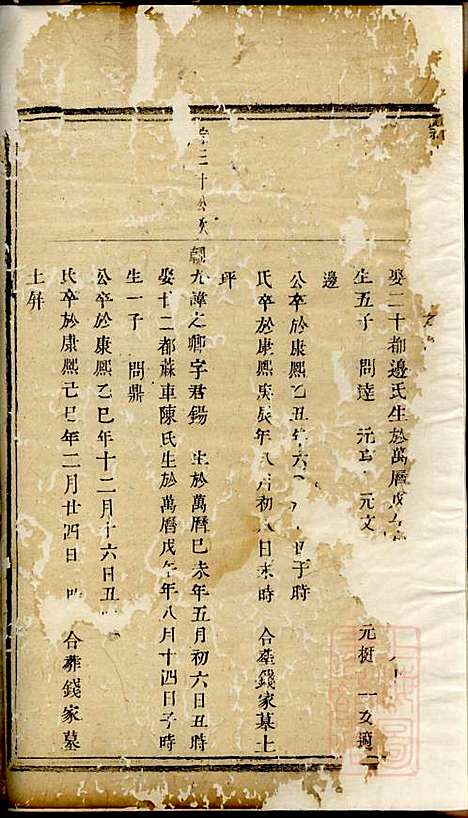 娶二十都邊氏生於萬曆戊
生五子 問達 元 元文 元挺 一女適
邊
公卒於康熙乙丑年六 時
氏卒於康熙庚辰年八月初八日未時 合葬錢家墓上
坪
十公次
九諱之卿字君錫 生於萬曆己未年五月初六日丑時
娶廿二都蘇車陳氏生於萬曆戊午年八月十四日子時
生一子 問鼎
公卒於康熙乙巳年十二月十六日丑
氏卒於康熙己巳年二月廿四日 合葬錢家墓
土屏